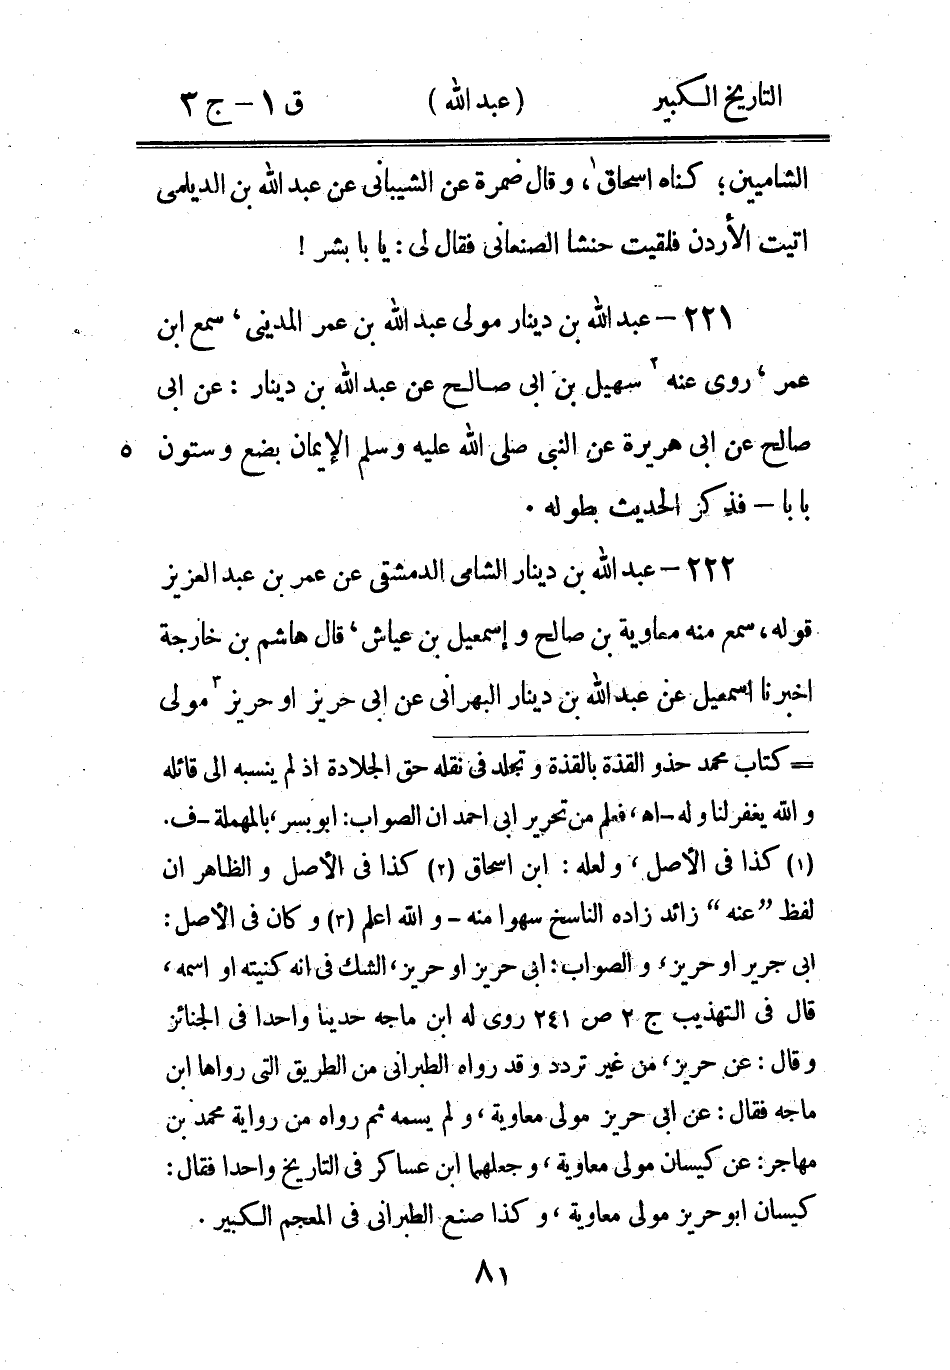 التاريخ الكبير (عبد الله) ق ١ - ج ٣
الشاميين؛ كناه اسحاق١، و قال ضمرة عن الشيبانى عن عبد الله بن الديلمى
اتيت الأردن فلقيت حنشا الصنعانى فقال لى: يا با بشر!
٢٢١ - عبد الله بن دينار مولى عبد الله بن عمر المدينى، سمع ابن
عمر، روى عنه٢ سهيل بن ابى صالح عن عبد الله بن دينار: عن ابى
صالح عن ابى هريرة عن النبى صلى الله عليه و سلم الإيمان بضع و ستون ٥
بابا - فذكر الحديث بطوله.
٢٢٢ - عبد الله بن دينار الشامى الدمشقى عن عمر بن عبد العزيز
قوله، سمع منه معاوية بن صالح و إسمعيل بن عياش، قال هاشم بن خارجة
اخبرنا اسمعيل عن عبد الله بن دينار البهرانى عن ابى حريز او حريز٣ مولى
= كتاب محمد حذو القذة بالقذة و تجلد فى نقله حق الجلادة اذ لم ينسبه الى قائله
و الله يغفر لنا و له - اه، فعلم من تحرير ابى احمد ان الصواب: ابو بسر، بالمهملة - ف.
(١) كذا فى الأصل، و لعله: ابن اسحاق (٢) كذا فى الأصل و الظاهر ان
لفظ ”عنه“ زائد زاده الناسخ سهوا منه - و الله اعلم (٣) و كان فى الأصل:
ابى جرير او حريز، و الصواب: ابى حريز او حريز، الشك فى انه كنيته او اسمه،
قال فى التهذيب ج ٢ ص ٢٤١ روى له ابن ماجه حديثا واحدا فى الجنائز
و قال: عن حريز، من غير تردد و قد رواه الطبرانى من الطريق التى رواها ابن
ماجه فقال: عن ابى حريز مولى معاوية، و لم يسمه ثم رواه من رواية محمد بن
مهاجر: عن كيسان مولى معاوية، و جعلهما ابن عساكر فى التاريخ واحدا فقال:
كيسان ابو حريز مولى معاوية، و كذا صنع الطبرانى فى المعجم الكبير.
٨١